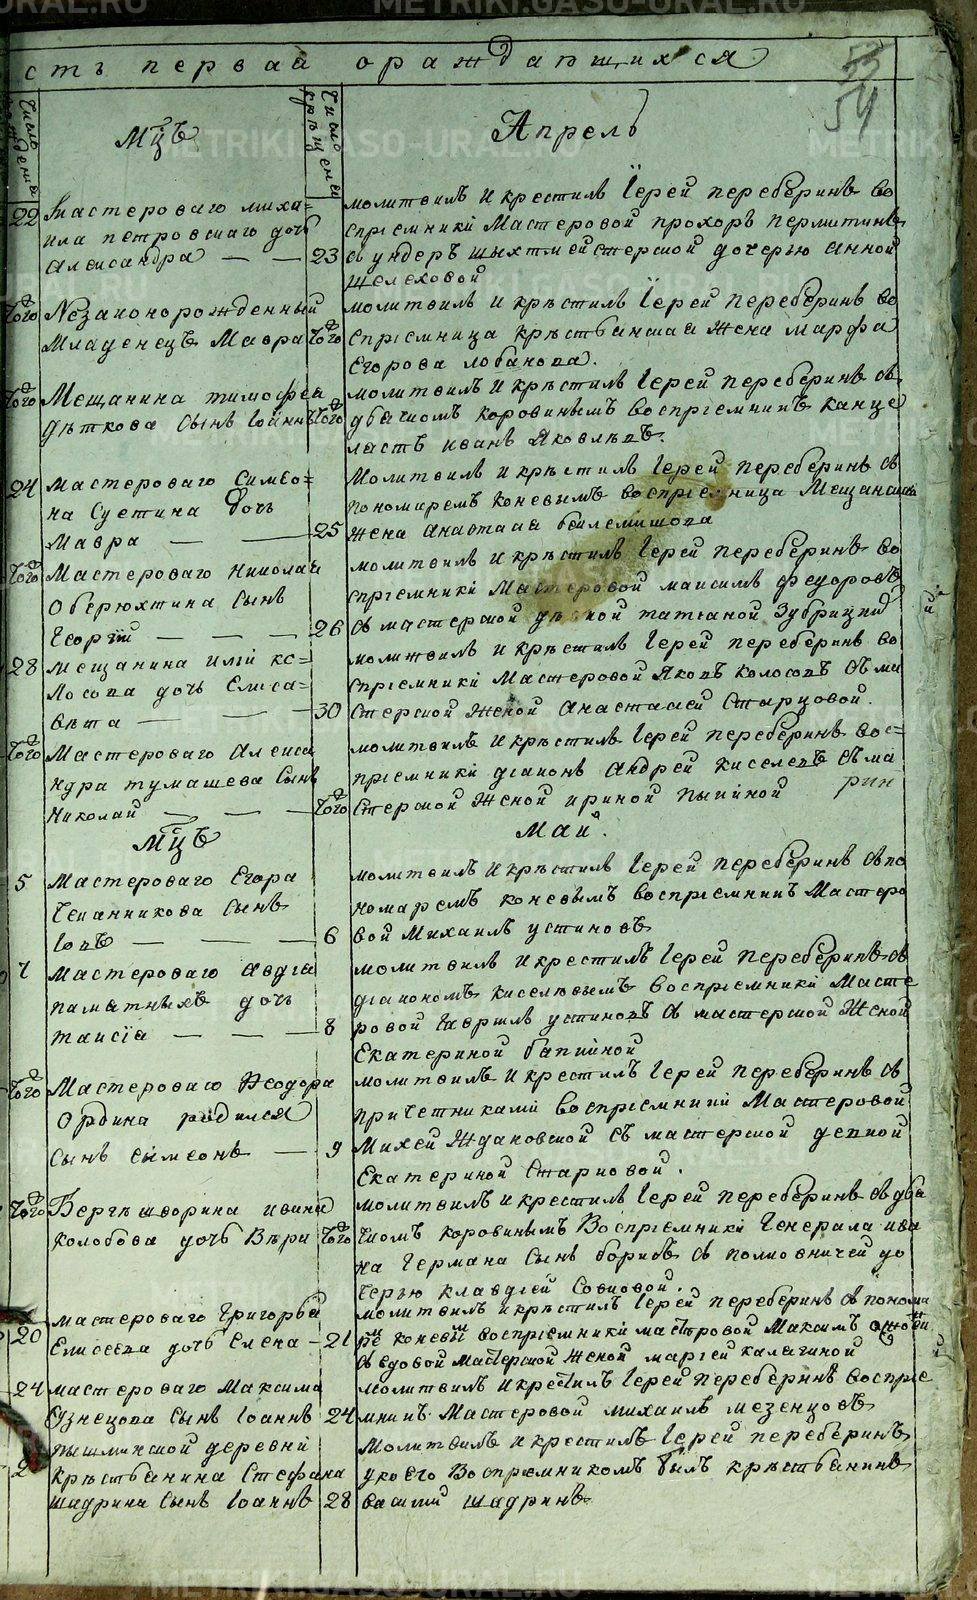 METRIKI.GASO-URAL.RU
сть первая о раждающихся
53
54
Число рождения
Мцъ
Число крещения
Апрель
22 Мастероваго Миха=
ила петровскаго дочь
Александра — — 23
молитвилъ и крестилъ Iерей переберинъ во
спрiемники Мастеровой прохоръ пермитинъ
съ ундеръ шыхтмейстерской дочерью Анной
Шелеховой
того Незаконорожденный
Младенецъ Мавра того
молитвилъ и крѣстилъ Iерей переберинъ во
спрiемница крѣстьянская жена Марфа
Егорова лобанова.
того Мещанина тимофея
дѣткова сынъ Iоаннъ того
молитвилъ и крѣстилъ Iерей переберинъ съ
дьячкомъ коровинымъ воспрiемникъ канце
ластъ иванъ Яковлевъ.
24 мастероваго Симео=
на Суетина дочь
Мавра — — 25
Молитвилъ и крѣстилъ Iерей переберинъ съ
пономаремъ коневымъ воспрiемница Мещанская
жена Анастасiя
того Мастероваго Николая
Оберюхтина сынъ
Георгiй — — — 26
молитвилъ и крѣстилъ Iерей переберинъ во
спрiемники Мастеровой максимъ федоровъ
съ мастерской дѣвкой татiаной Зубрицкий
28 мещанина илiи ко=
лосова дочь Елиса=
вѣта — — — 30
молитвилъ и крѣстилъ Iерей переберинъ во
спрiемники Мастеровой Яковъ колосовъ съ ма
стерской женой анастасiей Старцовой.
того Мастероваго Алекса
ндра тумашева сынъ
Николай — — того
молитвилъ и крѣстилъ Iерей переберинъ вос=
прiемники дiаконъ Андрей киселевъ съ ма
стерской женой ириной
Мцъ
Май.
5 Мастероваго Егора
сынъ
Iовъ — — — 6
молитвилъ и крѣстилъ Iерей переберинъ съ по
номаремъ коневымъ воспрiемникъ Мастеро
вой Михаилъ устиновъ
7 Мастероваго Авдiа
паматныхъ дочь
таисiа — — — 8
молитвилъ и крестилъ Iерей переберинъ съ
дiакономъ киселевымъ воспрiемники Масте
ровой Гаврiилъ устиновъ съ мастерской женой
Екатериной
того Мастероваго Феодора
Ордина родился
сынъ симеонъ — 9
молитвилъ и крестилъ Iерей переберинъ съ
причетниками воспрiемники Мастеровой
Михей Ждановской съ мастерской девкой
Екатериной Стариовой.
того Бергъ шворина ивана
колобова дочь Вѣра того
молитвилъ и крестилъ Iерей переберинъ съ дья
чкомъ коровинымъ воспрiемники Генерала ива
на Германа сынъ борисъ съ полковничей до
черью клавдiей Совковой.
20 мастероваго Григорья
Елисеева дочь Елена — 21
молитвилъ и крѣстилъ Iерей переберинъ съ понома
рѣ коневы воспрiемники мастровой Максимъ
съ вдовой мастерской женой марiей калягиной
24 мастероваго Максима
Кузнецова сынъ Iоаннъ 24
молитвилъ и крестилъ Iерей переберинъ воспрiе
мникъ Мастеровой михаилъ мезенцовъ
пышминской деревни
крѣстьянина Стефана
шадрина сынъ Iоаннъ 28
молитвилъ и крестилъ Iерей переберинъ
у коего воспрiемникомъ былъ крѣстьянинъ
василiй шадринъ